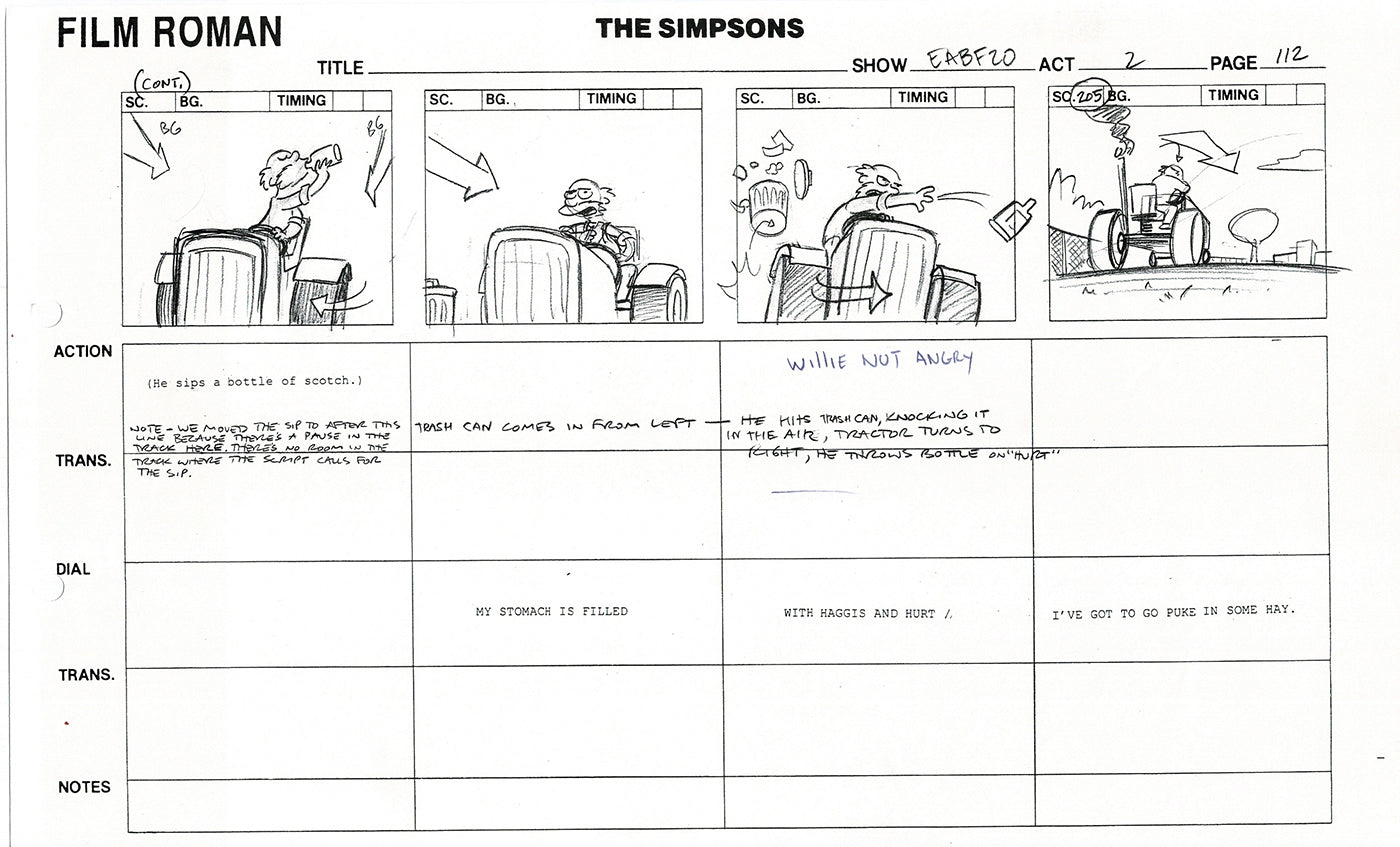 FILM ROMAN
THE SIMPSONS
TITLE SHOW EABF20 ACT 2 PAGE 112
(CONT.)
SC. BG. TIMING
SC. BG. TIMING
SC. BG. TIMING
SC. 205 BG. TIMING
BG
BG
ACTION
(He sips a bottle of scotch.)
NOTE - WE MOVED THE SIP TO AFTER THIS
LINE BECAUSE THERE'S A PAUSE IN THE
TRACK HERE. THERE'S NO ROOM IN THE
TRACK WHERE THE SCRIPT CALLS FOR
THE SIP.
TRASH CAN COMES IN FROM LEFT —
WILLIE NOT ANGRY
HE HITS TRASH CAN, KNOCKING IT
IN THE AIR, TRACTOR TURNS TO
RIGHT, HE THROWS BOTTLE ON "HURT"
TRANS.
DIAL
MY STOMACH IS FILLED
WITH HAGGIS AND HURT /.
I'VE GOT TO GO PUKE IN SOME HAY.
TRANS.
NOTES